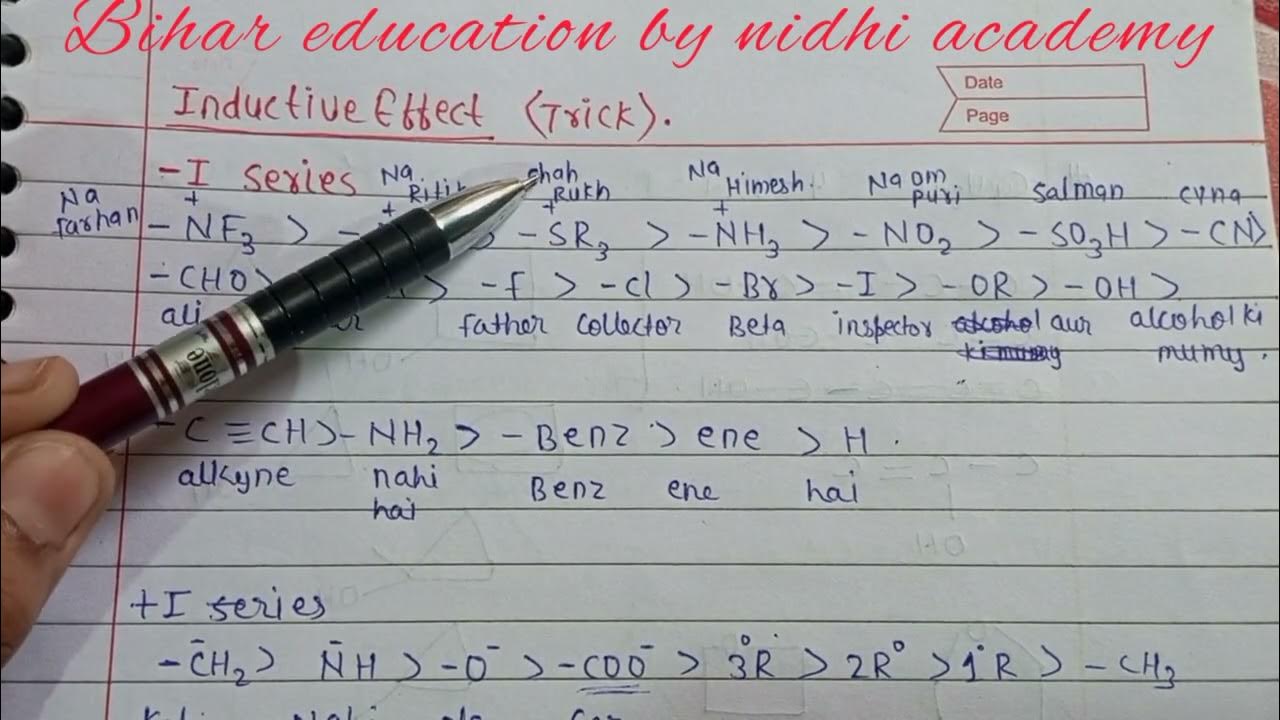 Bihar education by nidhi academy
Date
Inductive Effect (Trick).
Page
-I series Na Ritik shah Rukh Na Himesh. Na om puri salman cyna
Na farhan -N⁺F₃ > - ⁺ > -S⁺R₃ > -N⁺H₃ > -NO₂ > -SO₃H > -CN>
-CHO> > -F > -Cl > -Br > -I > -OR > -OH >
ali father collector Beta inspector aur alcohol ki
mumy.
-C≡CH > -NH₂ > -Benz > ene > H.
alkyne nahi Benz ene hai
hai
+I series
-C̄H₂ > N̄H > -O⁻ > -COO⁻ > 3°R > 2R° > 1°R > -CH₃